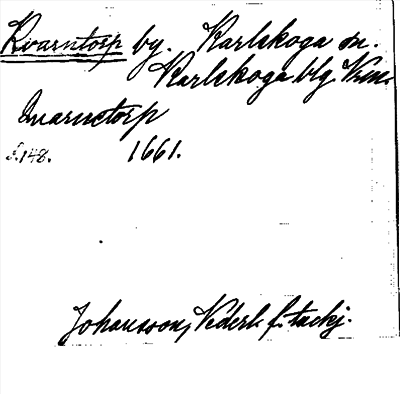 Kvarntorp by. Karlskoga sn.
Karlskoga blg Vrml.
Qvarnetorp
s. 148. 1661.
Johansson, Vederl. f. tackj.